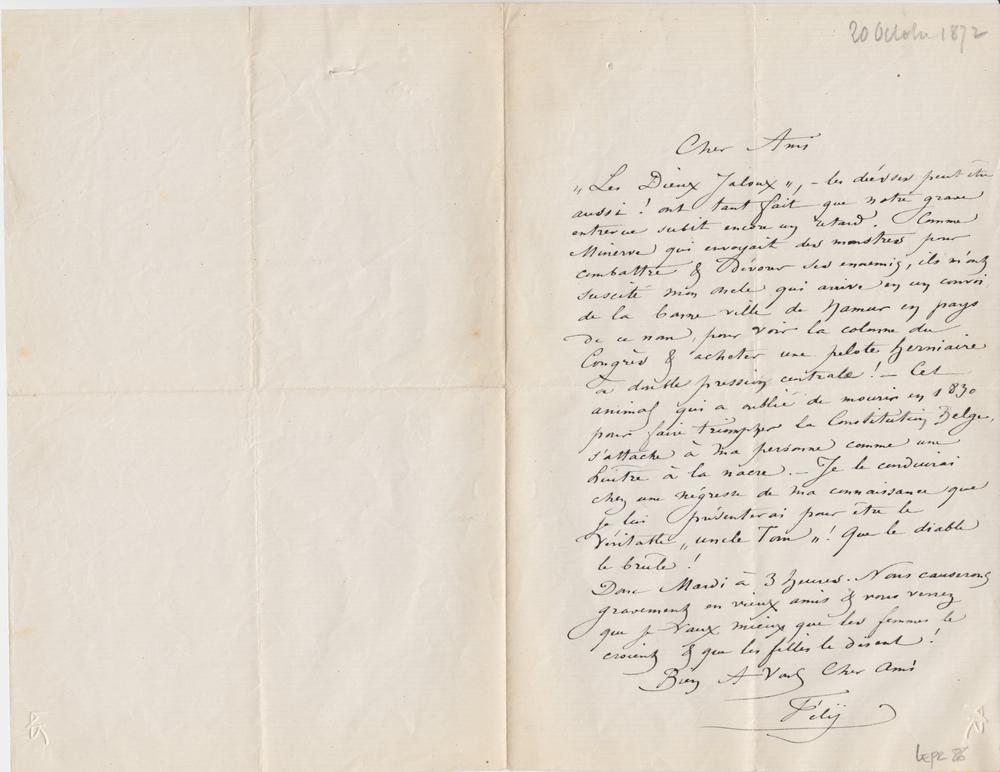 20 Octobre 1872
Cher Ami
„Les Dieux Jaloux„, – les déesses peut être
aussi ! ont tant fait que notre grave
entrevue subit encore un retard. Comme
Minerve qui envoyait des monstres pour
combattre & Dévorer ses ennemis, ils m'ont
suscité mon oncle qui arrive en un convoi
de la bonne ville de Namur en pays
de ce nom, pour voir la colonne du
Congrès & acheter une pelote herniaire
à double pression centrale ! – Cet
animal qui a oublié de mourir en 1830
pour faire triompher la Constitution Belge,
s'attache à ma personne comme une
huître à la nacre. – Je le conduirai
chez une négresse de ma connaissance que
je lui présenterai pour être le
Véritable „uncle Tom„ ! Que le diable
le brûle !
Donc Mardi à 3 heures. Nous causerons
gravement en vieux amis & vous verrez
que je vaux mieux que les femmes le
croient & que les filles le disent !
Bien A Vous Cher Ami
Féliÿ